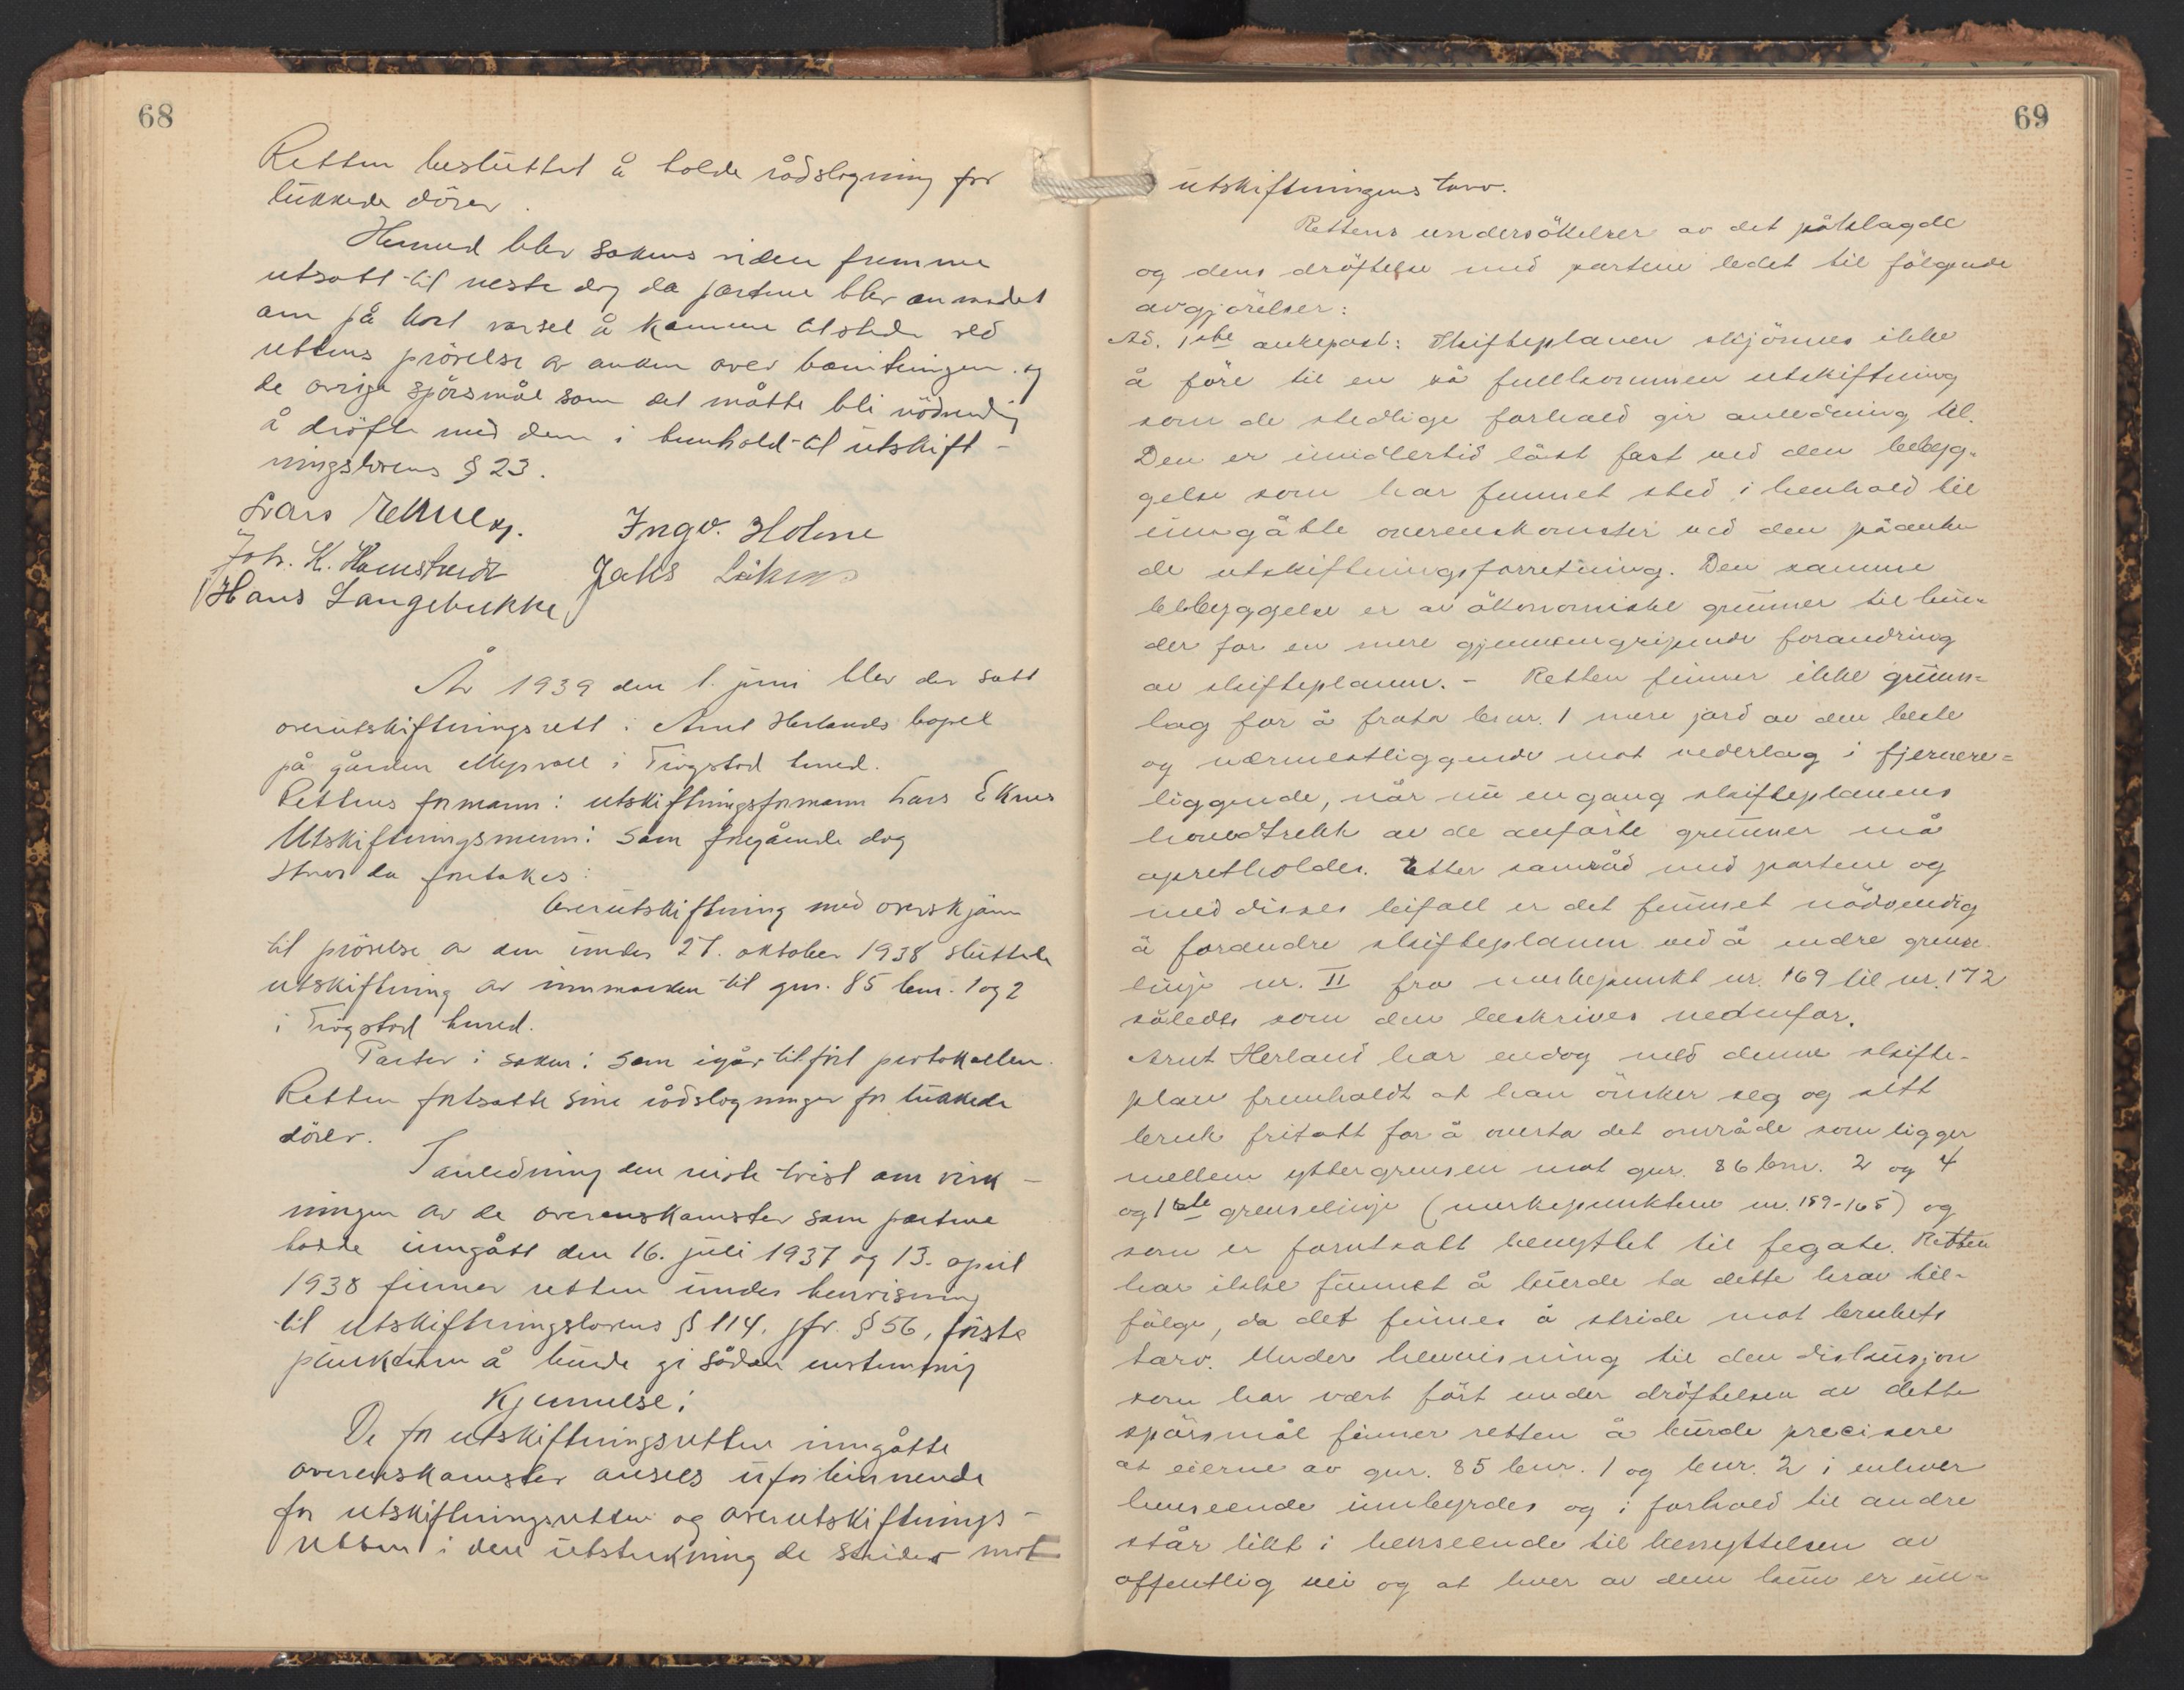 68
Retten besluttet å holde rådslagning for
lukkede dörer.
Hermed blev sakens videre fremme
utsatt til neste dag da partene blev anmodet
om på kort varsel å komme tilstede ved
rettens prövelse av anken over bonitering og
de övrige spörsmål som det måtte bli nödvendig
å dröfte med dem i henhold til utskift-
ningslovens § 23.
Lars Ekrue
Ingv. Holme
Joh. K. Hamstvedt
Jahs
Hans Langebukke
År 1939 den 1. juni blev der satt
overutskiftningsrett i Arnt Herlands bopel
på gården Mysvoll i Trögstad herred.
Rettens formann: utskiftningsformann Lars Ekrue
Utskiftningsmenn: Som foregående dag
Hvor da foretokes:
Overutskiftning med overskjönn
til prövelse av den under 27. oktober 1938 sluttede
utskiftning av innmarken til gnr. 85 bnr. 1 og 2
i Trögstad herred.
Parter i saken: som igår tilfört protokollen.
Retten fortsatte sine rådslagninger for lukkede
dörer.
I anledning den reiste tvist om virk-
ningen av de overenskomster som partene
hadde inngått den 16. juli 1937 og 13. april
1938 finner retten under henvisning
til utskiftningslovens § 114. jfr. § 56, förste
punktum å burde gi sådan enstemmig
Kjennelse:
De for utskiftningsretten inngåtte
overenskomster ansees uforbinnende
for utskiftningsretten og overutskiftnings-
retten i den utstrekning de strider mot
69
utskiftningens tarv.
Rettens undersökelser av det påklagde
og dens dröftelse med partene ledet til fölgende
avgjörelser:
Ad. 1ste ankepost: Skifteplanen skjönnes ikke
å före til en så fullkommen utskiftning
som de stedlige forhold gir anledning til.
Den er imidlertid låst fast ved den bebyg-
gelse som har funnet sted i henhold til
inngåtte overenskomster ved den påanke
de utskiftningsforretning. Den samme
bebyggelse er av ökonomiske grunner til hin-
der for en mere gjennemgripende forandring
av skifteplanen. - Retten finner ikke grunn-
lag for å frata bnr. 1 mere jord av den beste
og nærmestliggende mot vederlag i fjernere-
liggende, når nu engang skifteplanens
hovedtrekk av de anförte grunner må
opretholdes. Etter samråd med partene og
med disses bifall er det funnet nödvendig
å forandre skifteplanen ved å endre grense
linje nr. II fra merkepunkt nr. 169 til nr. 172
således som den beskrives nedenfor.
Arnt Herland har endog med denne skifte-
plan fremholdt at han önsker seg og sitt
bruk fritatt for å overta det område som ligger
mellem yttergrensen mot gnr. 86 bnr. 2 og 4
og 1ste grenselinje (merkepunktene nr. 159-165) og
som er forutsatt benyttet til fegate. Retten
har ikke funnet å burde ta dette krav til-
fölge, da det finnes å stride mot brukets
tarv. Under henvisning til den diskusjon
som har vært fört under dröftelsen av dette
spörsmål finner retten å burde precisere
at eierne av gnr. 85 bnr. 1 og bnr. 2 i enhver
henseende innbyrdes og i forhold til andre
står likt i henseende til benyttelsen av
offentlig vei og at hver av dem kun er un-